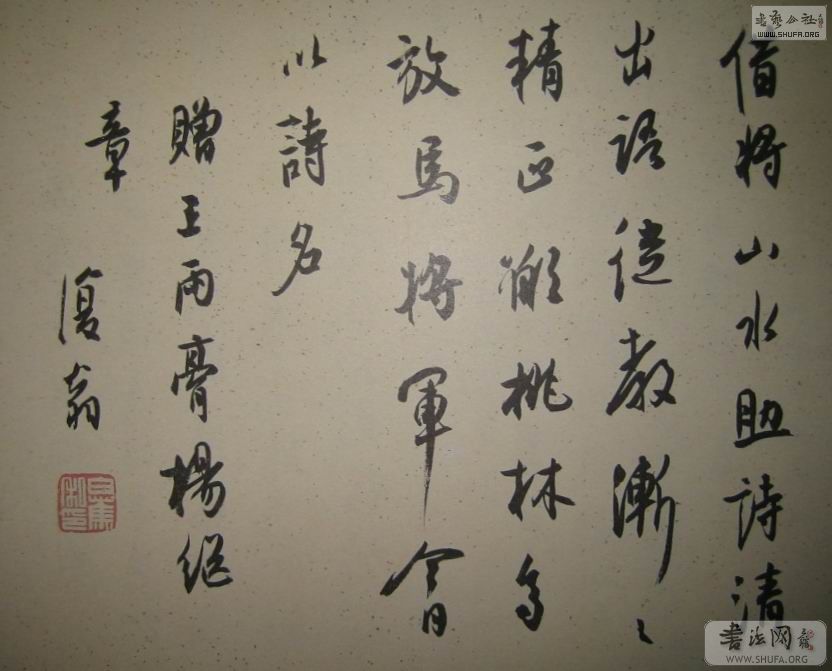 書藝公社
WWW.SHUFA.ORG
借将山水助詩清
出語従教漸〻
精正桃林
放馬将軍今日
以詩名
贈王雨膏楊继
章
復翁
書法网
WWW.SHUFA.ORG